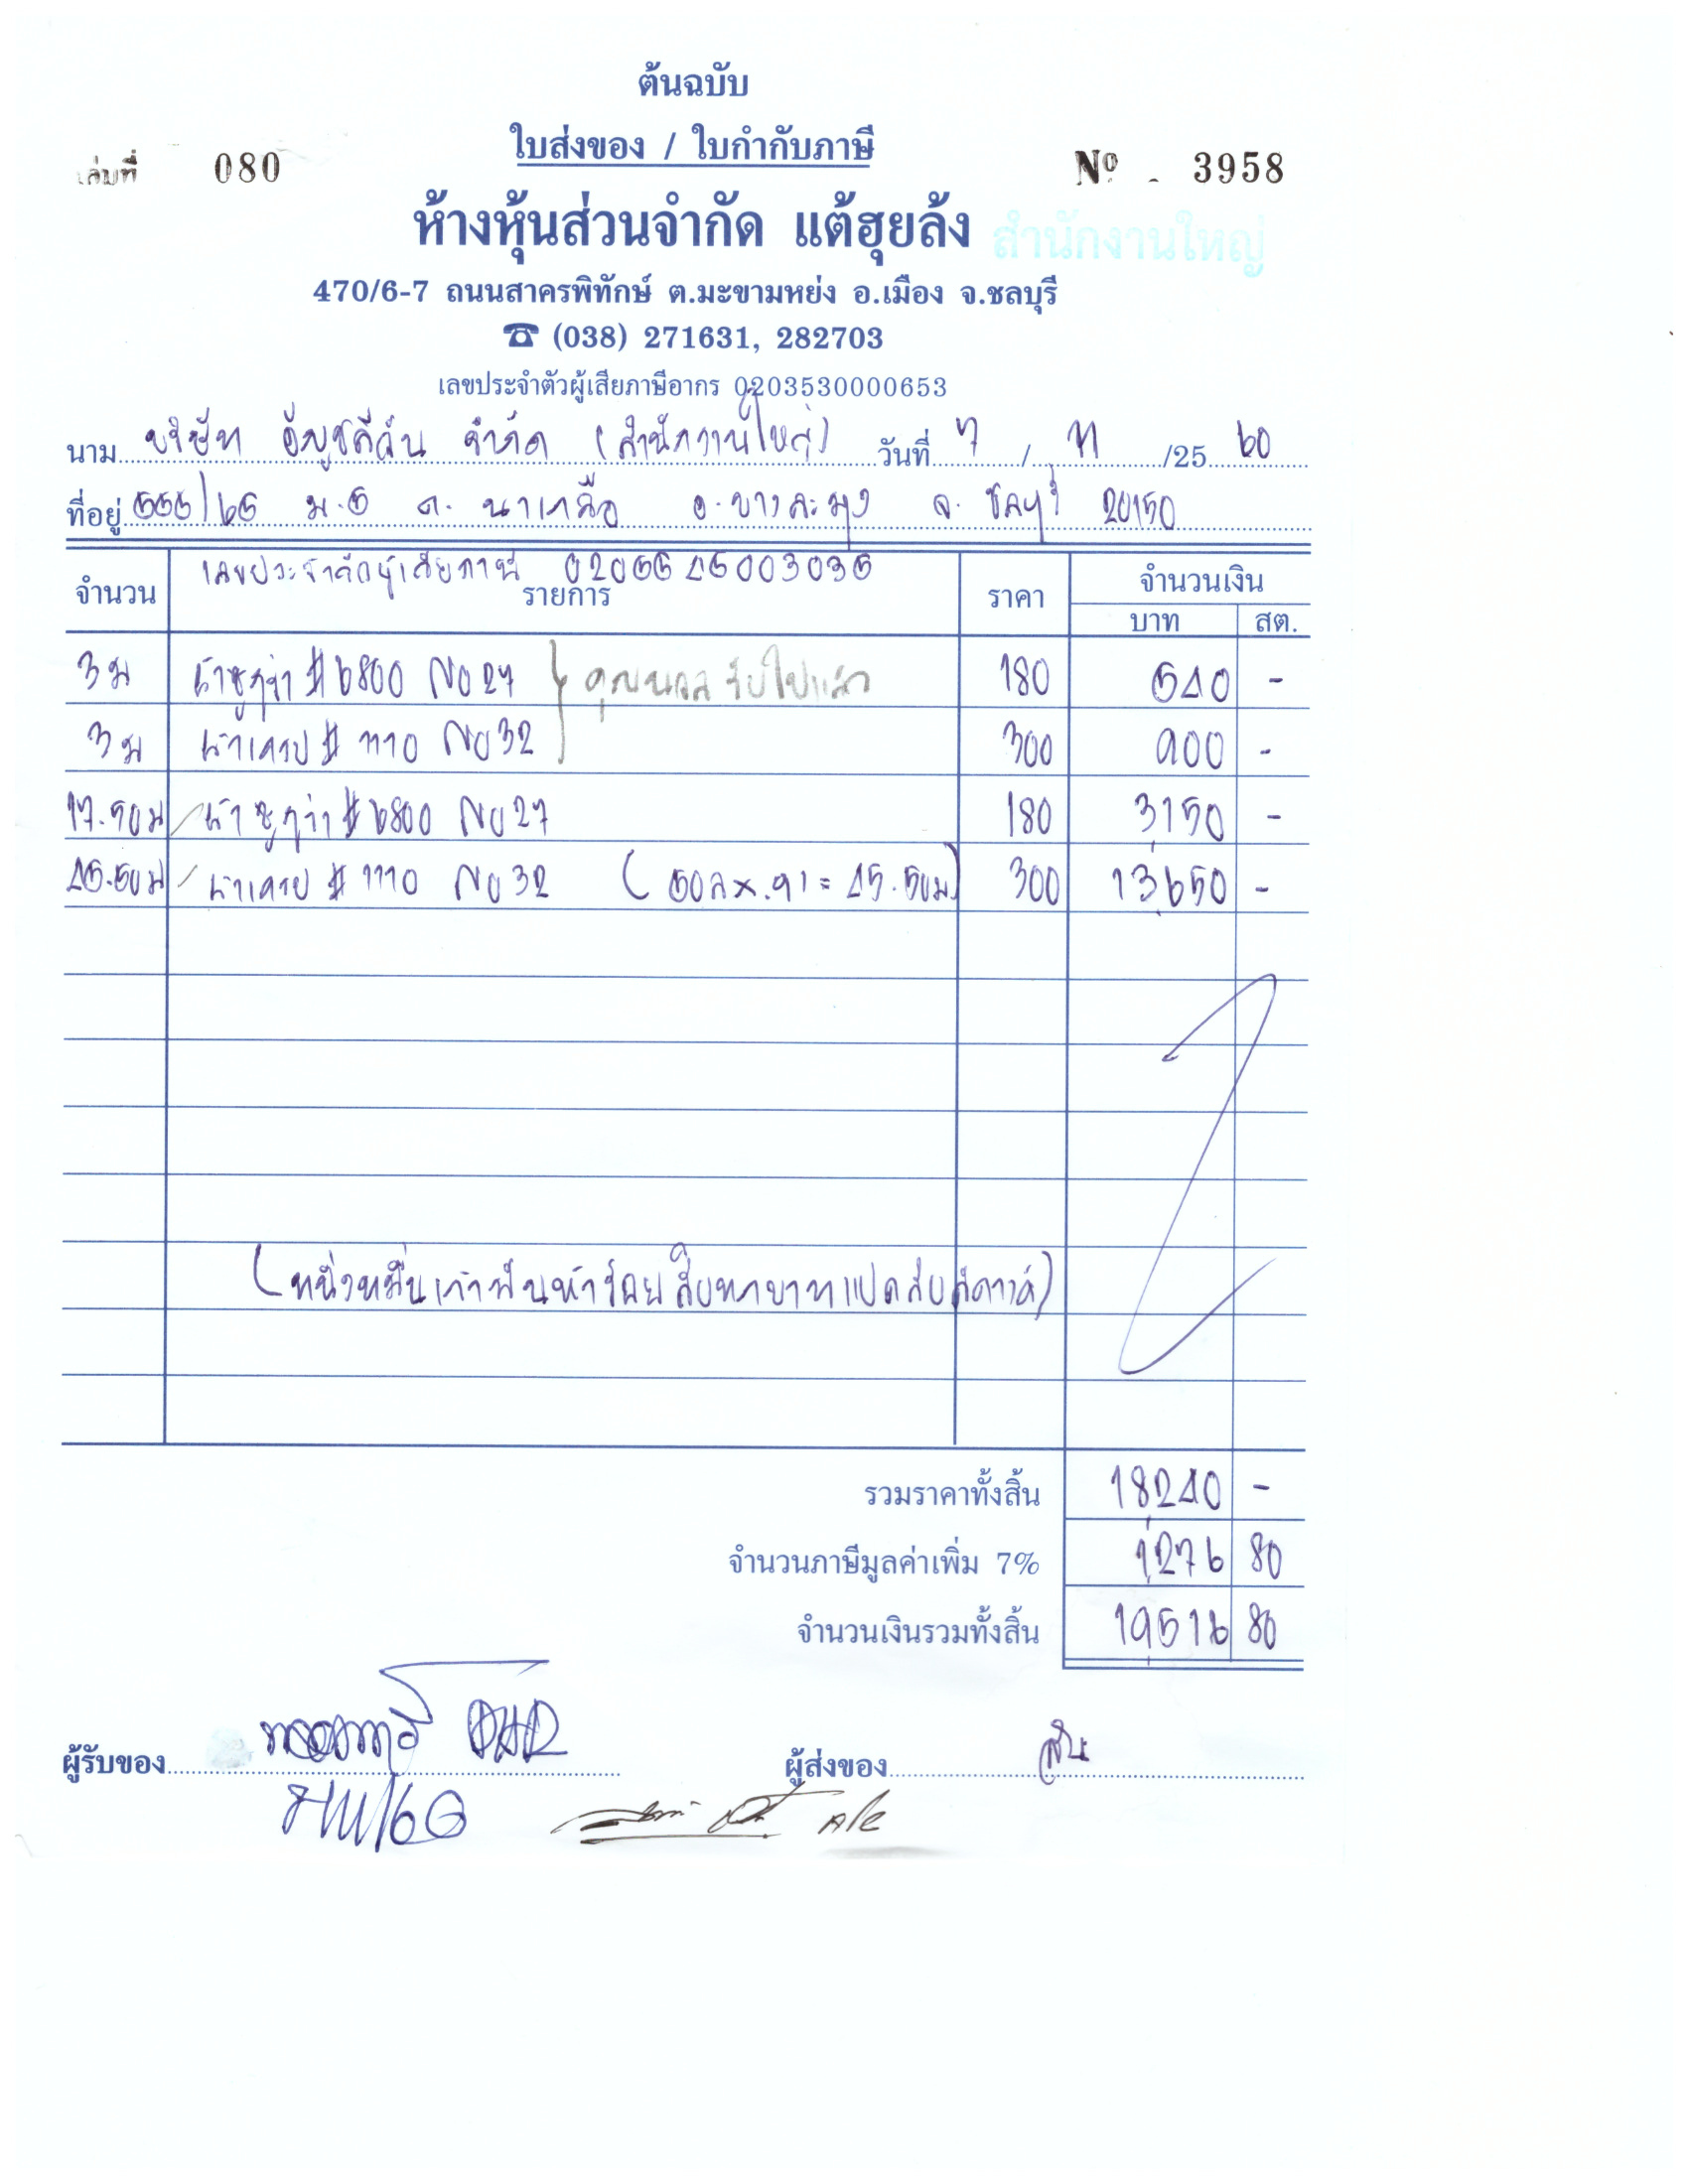 ต้นฉบับ
ใบส่งของ / ใบกำกับภาษี
เล่มที่ 080 Nº 3958
ห้างหุ้นส่วนจำกัด แต้ฮุยล้ง สำนักงานใหญ่
470/6-7 ถนนสาครพิทักษ์ ต.มะขามหย่ง อ.เมือง จ.ชลบุรี
☎ (038) 271631, 282703
เลขประจำตัวผู้เสียภาษีอากร 0203530000653
นาม บริษัท จำกัด (สำนักงานใหญ่) วันที่ 7 / 11 /25 60
ที่อยู่ 555/65 ม.5 ต. นาเกลือ อ.บางละมุง จ. ชลบุรี 20150
เลขประจำตัวผู้เสียภาษี 0205545003035
จำนวน รายการ ราคา จำนวนเงิน
บาท สต.
3 ม # 6800 No 27 รับไปแล้ว 180 540 -
3 ม # 1110 No 32 300 900 -
17.50 ม # 6800 No 27 180 3150 -
45.50 ม # 1110 No 32 (50 = 45.50ม) 300 13,650 -
(หนึ่งหมื่นเก้าพันห้าร้อยสิบหกบาทแปดสิบสตางค์)
รวมราคาทั้งสิ้น 18240 -
จำนวนภาษีมูลค่าเพิ่ม 7% 1,276 80
จำนวนเงินรวมทั้งสิ้น 19516 80
ผู้รับของ ผู้ส่งของ